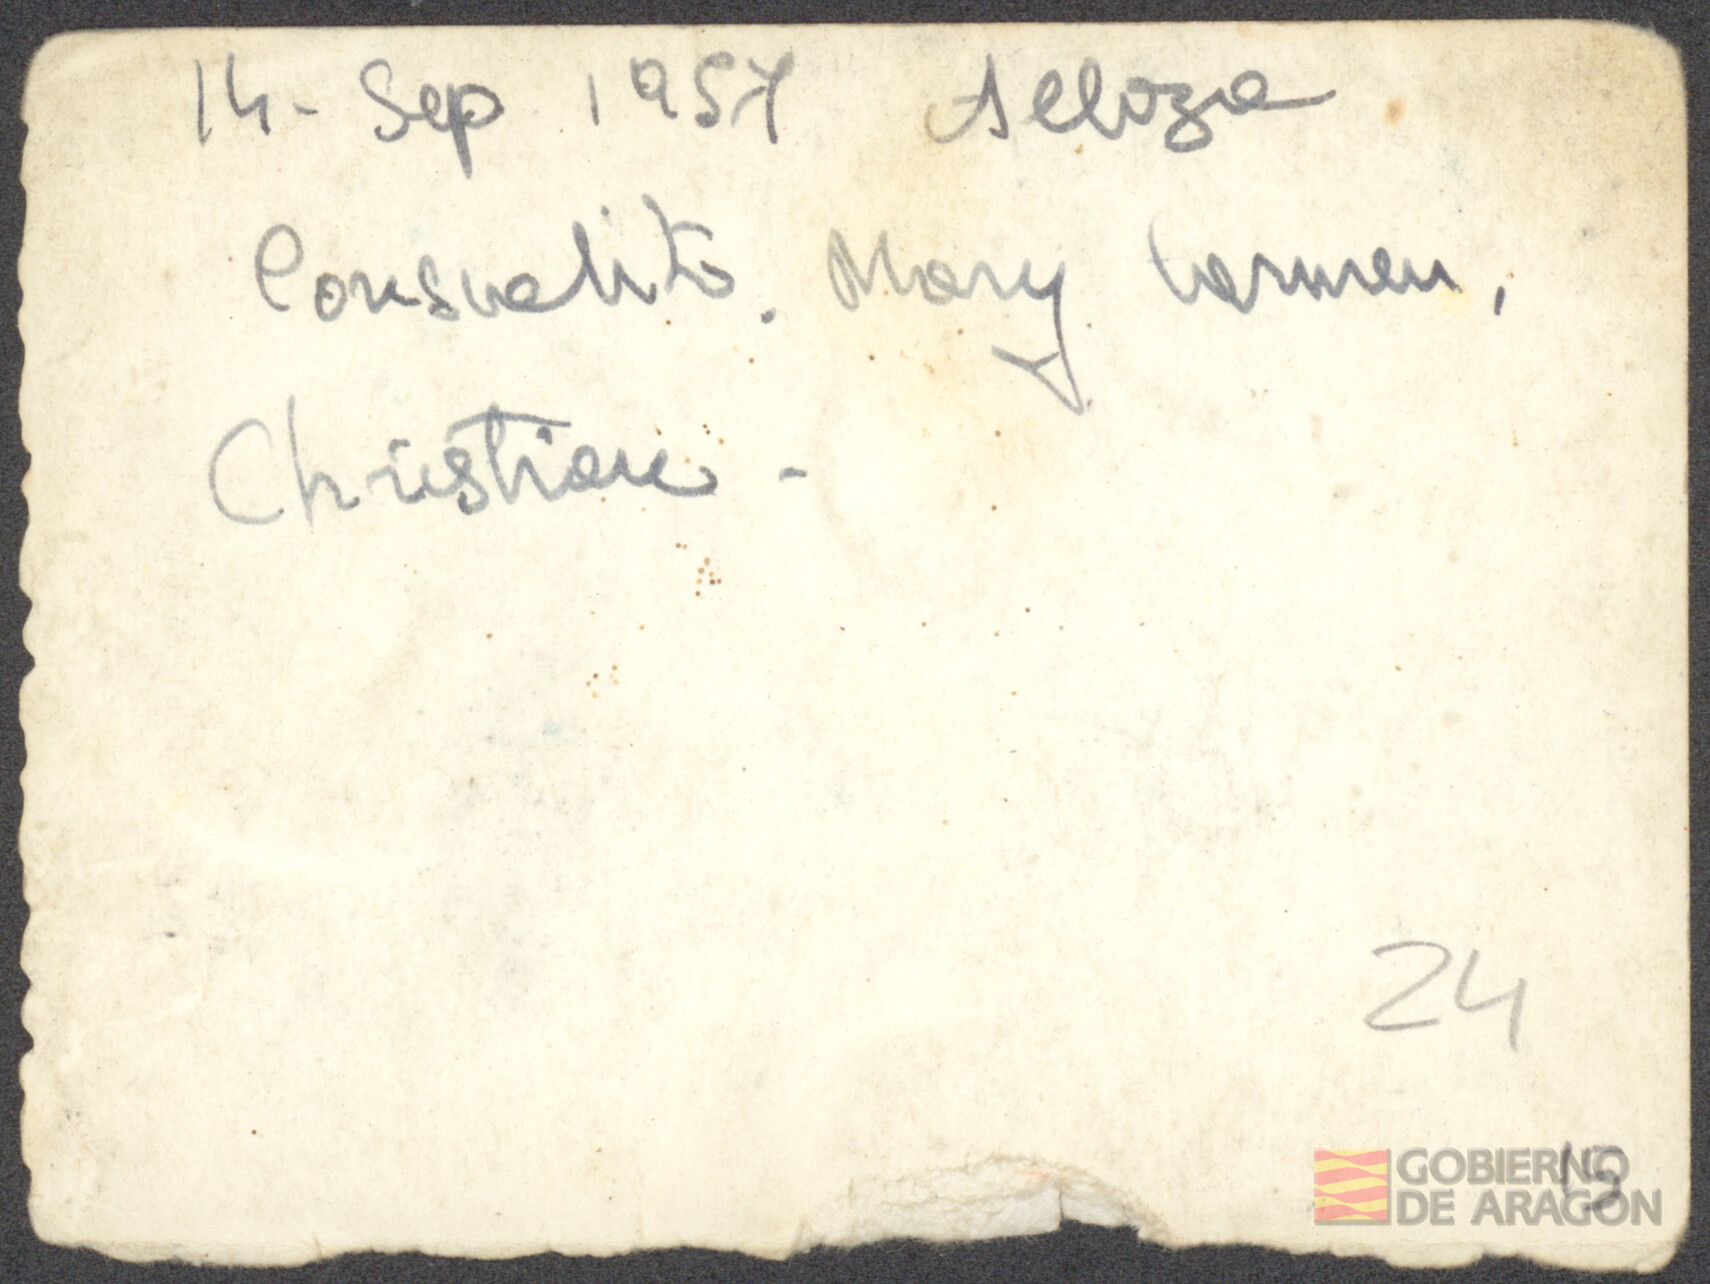 14 - Sep 1957 Alloza
Consuelito. Mary Carmen,
Christiane -
24
15
GOBIERNO
DE ARAGON